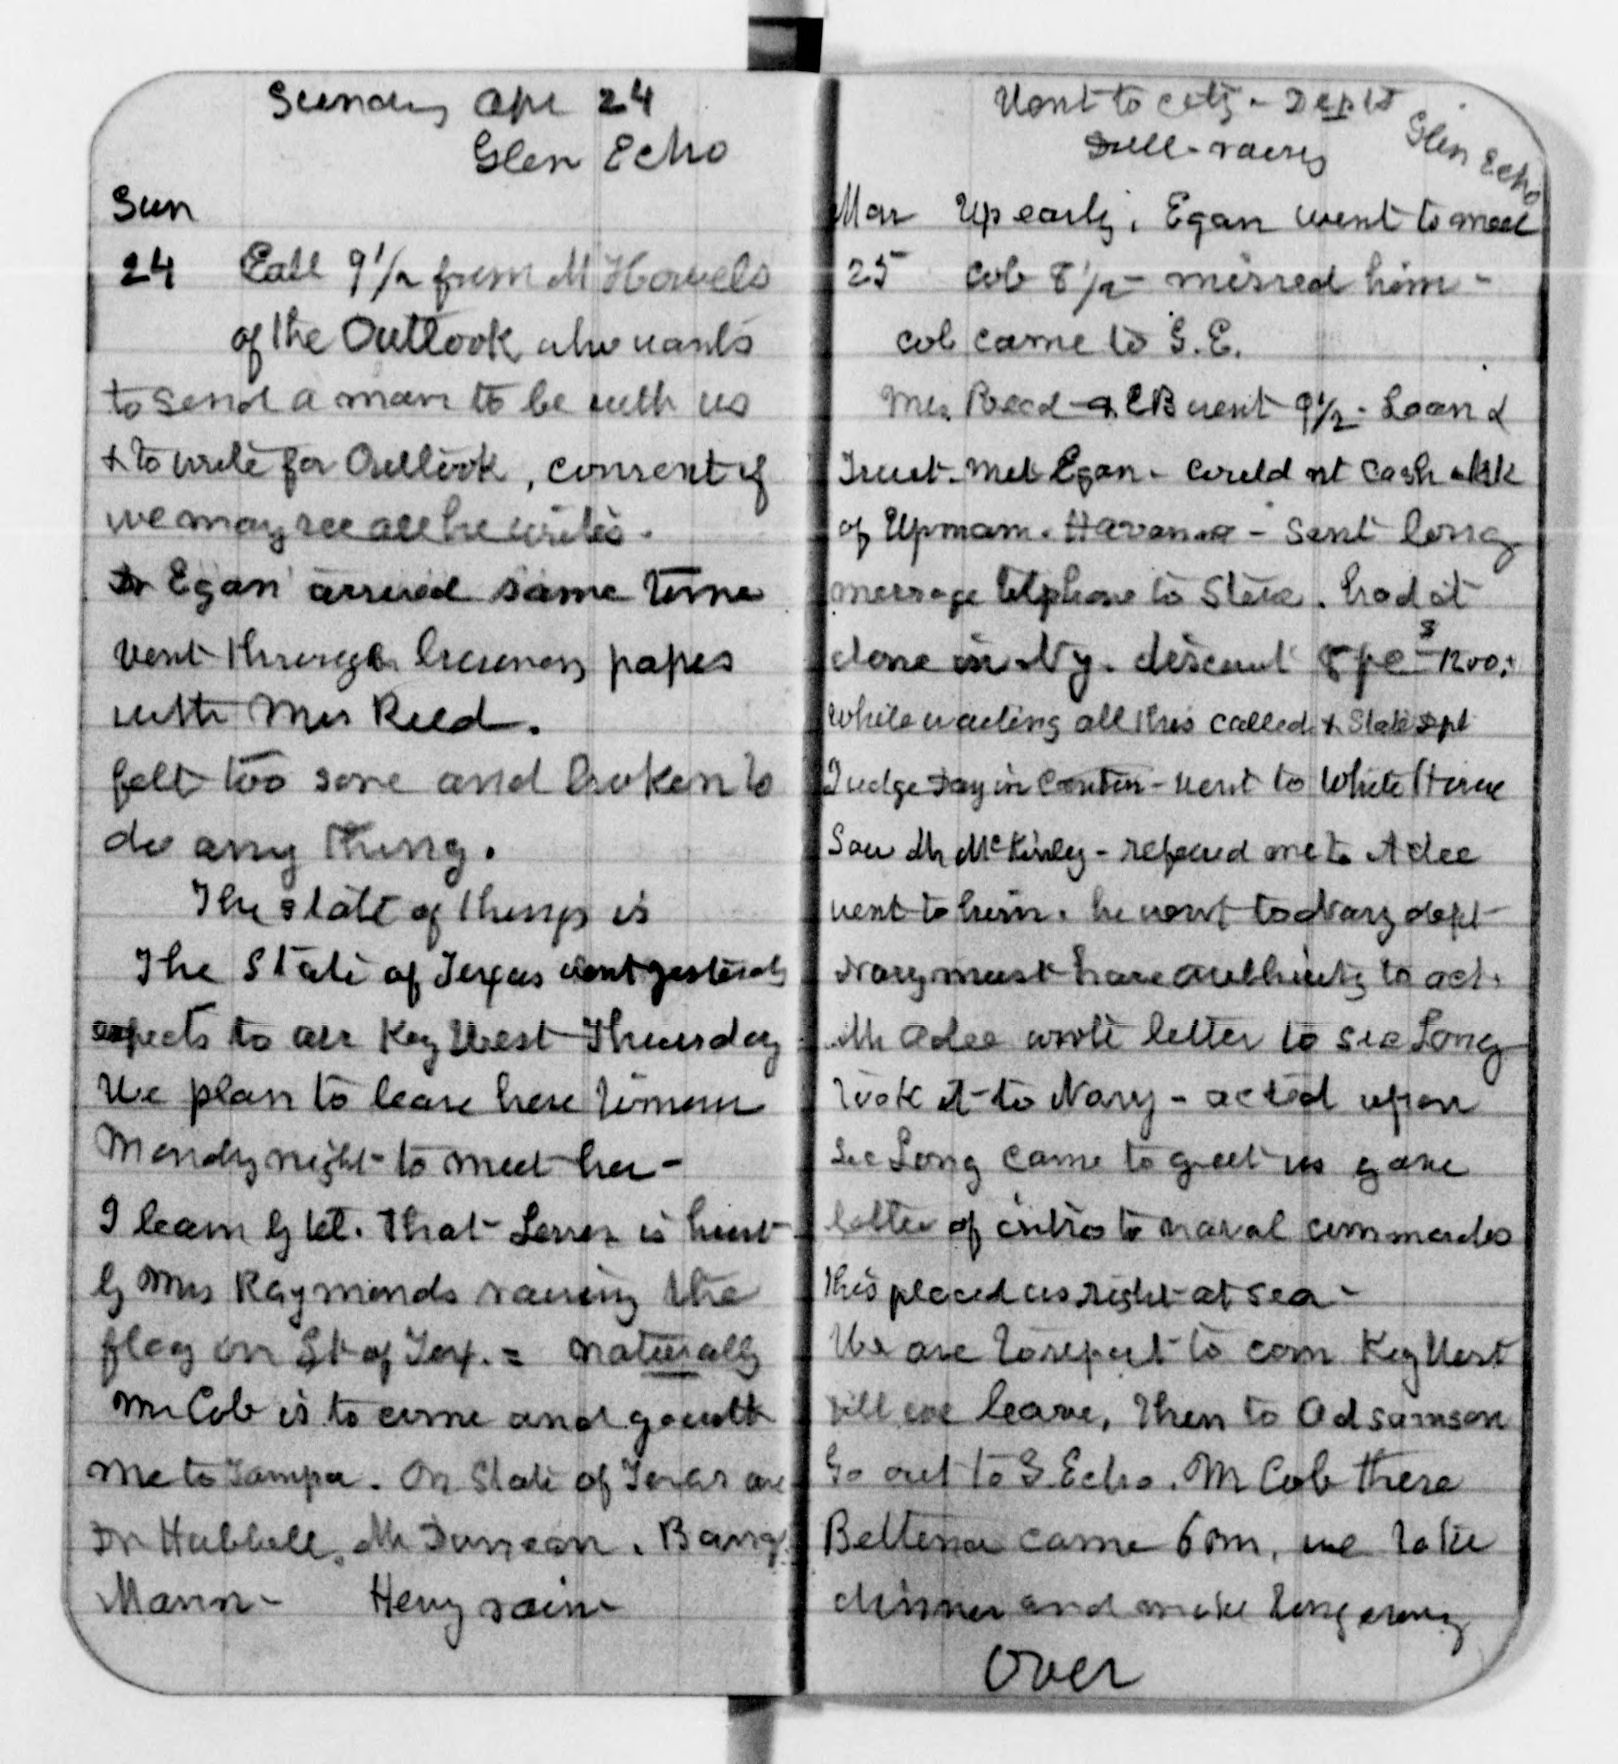 Sunday Apr 24
Glen Echo
Sun
24 Call 9 1/2 from M Howels
of the Outlook who wants
to send a man to be with us
& to write for Outlook, consent if
we may see all he writes.
Dr Egan arrived same time
went through business papes
with Mrs Reed.
felt too sore and broken to
do any thing.
The state of things is
The State of Texas went yesterdy
expects to arr Key West Thursday
We plan to leave here tomorrow
Mondy night to meet her -
I learn by let. that Lesser is hurt
by Mrs Raymonds raising the
flag on St of Tex. = naturally
Mr Cob is to come and go with
me to Tampa. On State of Texas are
Dr Hubbell, Mr Duncan. Bangs.
Mann - Heny rain
Went to city - Depts
Dull - rainy
Glen Echo
Mon Up early, Egan went to meet
25 Cob 8 1/2 - missed him -
Cob came to G. E.
Mrs. Reed & CB went 9 1/2 - Loan &
Trust. met Egan - could nt cash
of Upmam. Havana - sent long
message telphone to State. had it
done in Ny. discount 8 pc - $1200.
while waiting all this called State Dpt
Judge Day in - went to White House
Saw Mr McKinley - refered me to Adee
went to him. he went to Navy dept
Navy must have authority to act.
Mr Adee wrote letter to Sec Long
took it to Navy - acted upon
Sec Long came to greet us gave
letter of intro to naval commandes
this placed us right at sea -
We are to report to com Key West
till we leave, then to Ad samson
Go out to G. Echo. Mr Cob there
Bettina came 6 pm, we take
dinner and make long evening
Over